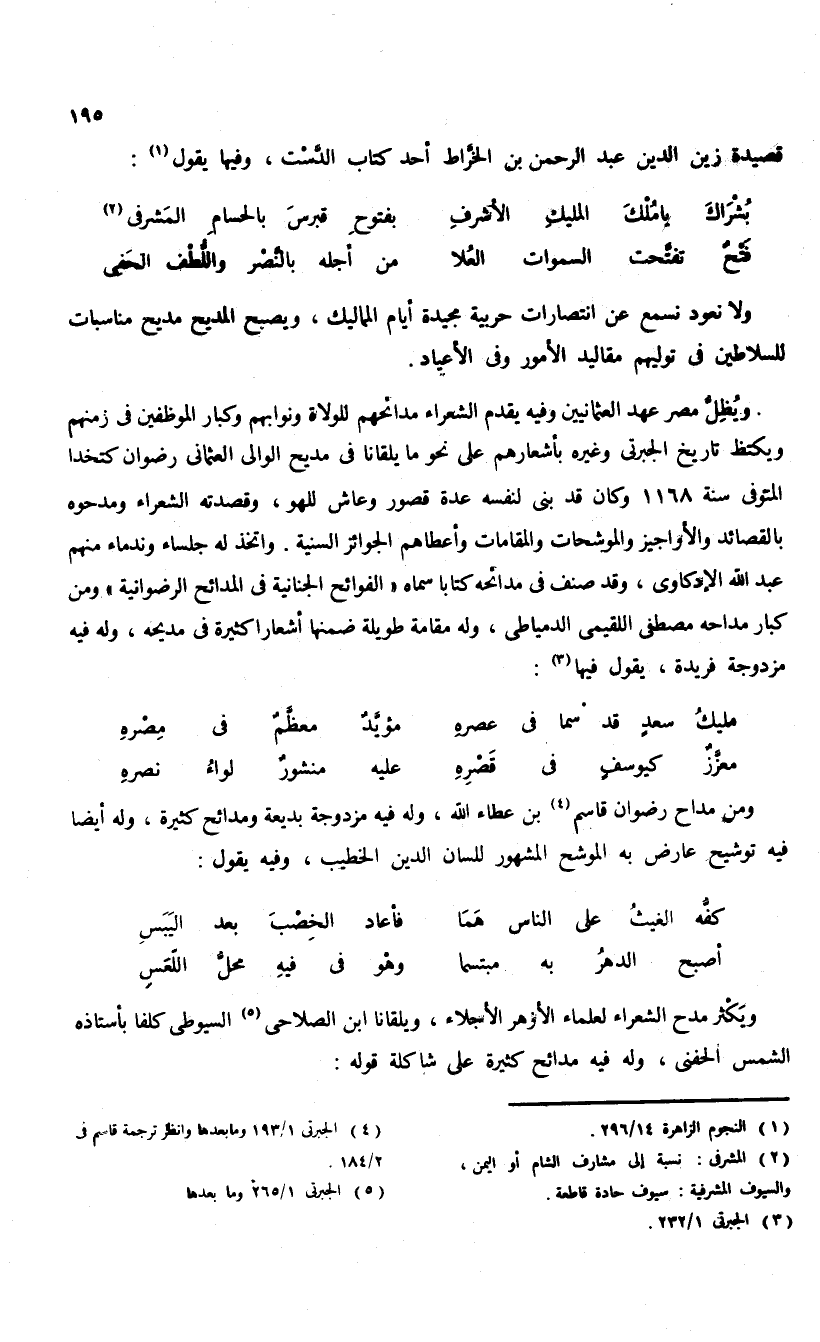 ١٩٥
قصيدة زين الدين عبد الرحمن بن الخرَّاط أحد كتاب الدَّسْت ، وفيها يقول(١) :
بُشْرَاكَ يامُلْكَ المليكِ الأشرفِ بفتوحِ قبرسَ بالحسامِ المَشرفى(٢)
فَتْحٌ تفتَّحت السموات العُلا من أجله بالنَّصْر واللُّطْف الخَفِى
ولا نعود نسمع عن انتصارات حربية مجيدة أيام المماليك ، ويصبح المديح مديح مناسبات
للسلاطين فى توليهم مقاليد الأمور وفى الأعياد .
. ويُظِلُّ مصر عهد العثمانيين وفيه يقدم الشعراء مدائحهم للولاة ونوابهم وكبار الموظفين فى زمنهم
ويكتظ تاريخ الجبرتى وغيره بأشعارهم على نحو ما يلقانا فى مديح الوالى العثمانى رضوان كتخدا
المتوفى سنة ١١٦٨ وكان قد بنى لنفسه عدة قصور وعاش للهو ، وقصدته الشعراء ومدحوه
بالقصائد والأواجيز والموشحات والمقامات وأعطاهم الجوائز السنية . واتخذ له جلساء وندماء منهم
عبد الله الإدكاوى ، وقد صنف فى مدائحه كتابا سماه « الفوائح الجنانية فى المدائح الرضوانية » ومن
كبار مداحه مصطفى اللقيمى الدمياطى ، وله مقامة طويلة ضمنها أشعارا كثيرة فى مديحه ، وله فيه
مزدوجة فريدة ، يقول فيها(٣) :
مليكُ سعدٍ قد سما فى عصرهِ مؤيَّدٌ معظَّمٌ فى مِصْرهِ
معزَّزٌ كيوسفٍ فى قَصْرِهِ عليه منشورٌ لواءُ نصرهِ
ومن مداح رضوان قاسم(٤) بن عطاء الله ، وله فيه مزدوجة بديعة ومدائح كثيرة ، وله أيضا
فيه توشيح عارض به الموشح المشهور للسان الدين الخطيب ، وفيه يقول :
كفُّه الغيثُ على الناس هَمَا فأعاد الخِصْبَ بعد اليَبَسِ
أصبح الدهرُ به مبتسما وهْو فى فيهِ محلُّ اللَّعَسِ
ويَكْثر مدح الشعراء لعلماء الأزهر الأجلاء ، ويلقانا ابن الصلاحى(٥) السيوطى كلفا بأستاذه
الشمس الحفنى ، وله فيه مدائح كثيرة على شاكلة قوله :
(١) النجوم الزاهرة ٢٩٦/١٤ .
(٢) المشرفى : نسبة إلى مشارف الشام أو اليمن ،
والسيوف المشرفية : سيوف حادة قاطعة .
(٣) الجبرتى ٢٣٢/١ .
(٤) الجبرتى ١٩٣/١ ومابعدها وانظر ترجمة قاسم فى
١٨٤/٢ .
(٥) الجبرتى ٢٦٥/١ وما بعدها